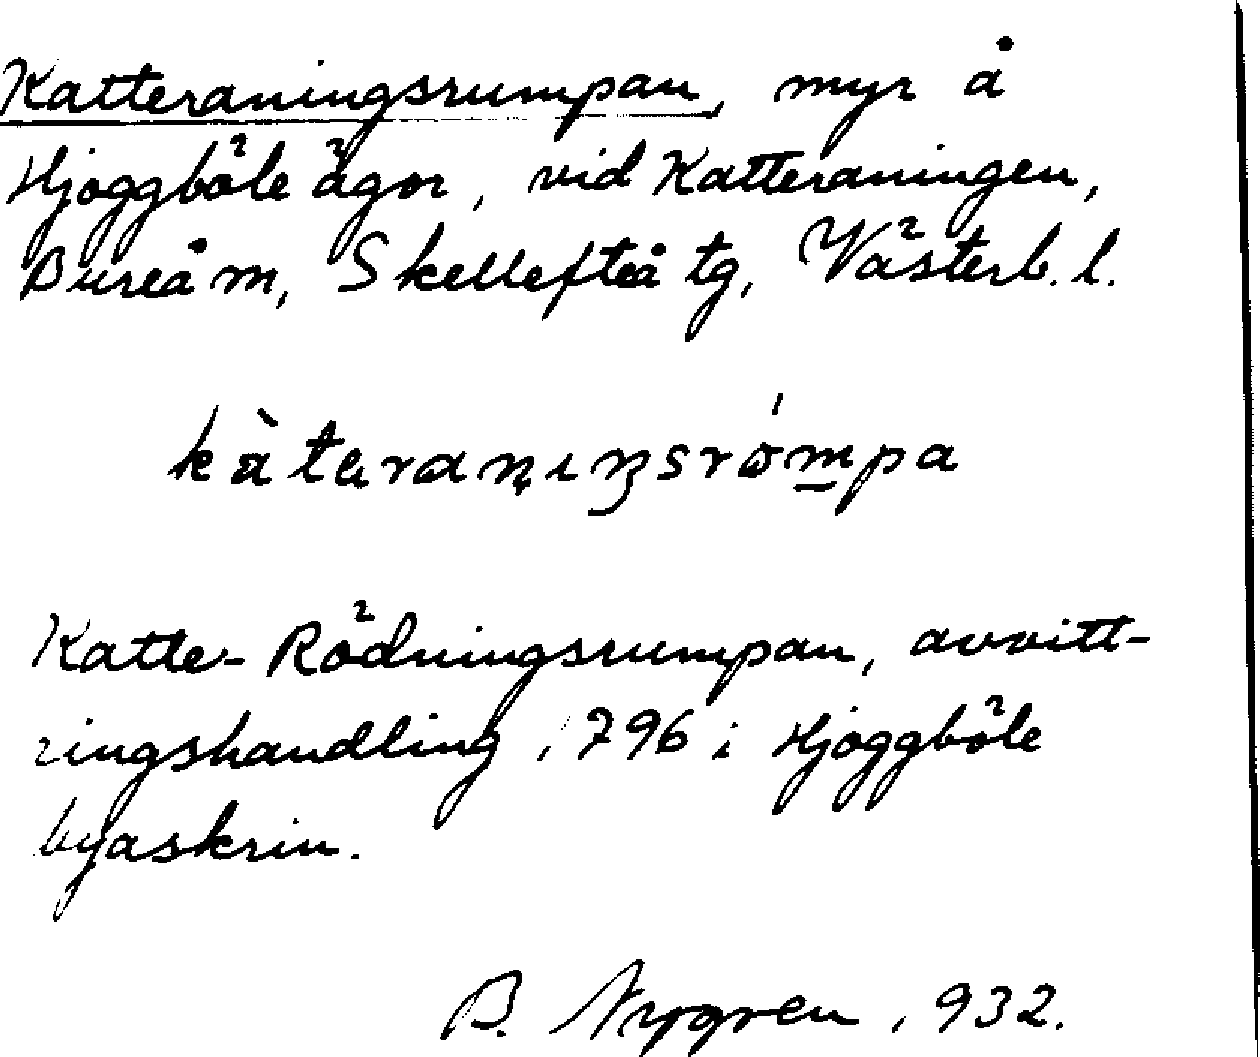 Katteraningsrumpan, myr å
Hjoggböle ägor, vid Katteraningen,
Bureå m, Skellefteå tg, Västerb. l.
kàtəranıŋsrómpa
Katte-Rödningsrumpan, avvitt-
ringshandling 1796 i Hjoggböle
byaskrin.
B. Nygren 1932.